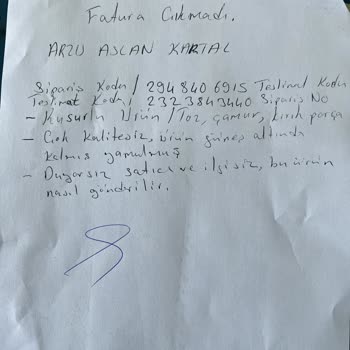 Fatura Çıkmadı.
ARZU ASLAN KARTAL
Sipariş Kodu / 294 840 6915 Teslimat Kodu
Teslimat Kodu / 232 3843440 Sipariş No
- Kusurlu Ürün / Toz, çamur, kırık parça
- Çok kalitesiz, ürün güneş altında
kalmış yamulmuş
- Duyarsız satıcı ve ilgisiz, bu ürün
nasıl gönderilir.